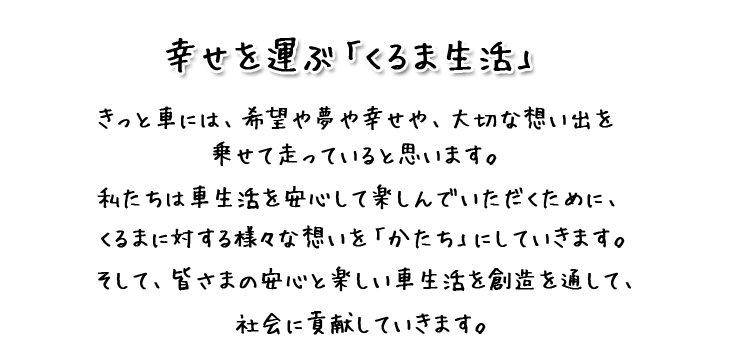 幸せを運ぶ「くるま生活」
きっと車には、希望や夢や幸せや、大切な想い出を
乗せて走っていると思います。
私たちは車生活を安心して楽しんでいただくために、
くるまに対する様々な想いを「かたち」にしていきます。
そして、皆さまの安心と楽しい車生活を創造を通して、
社会に貢献していきます。